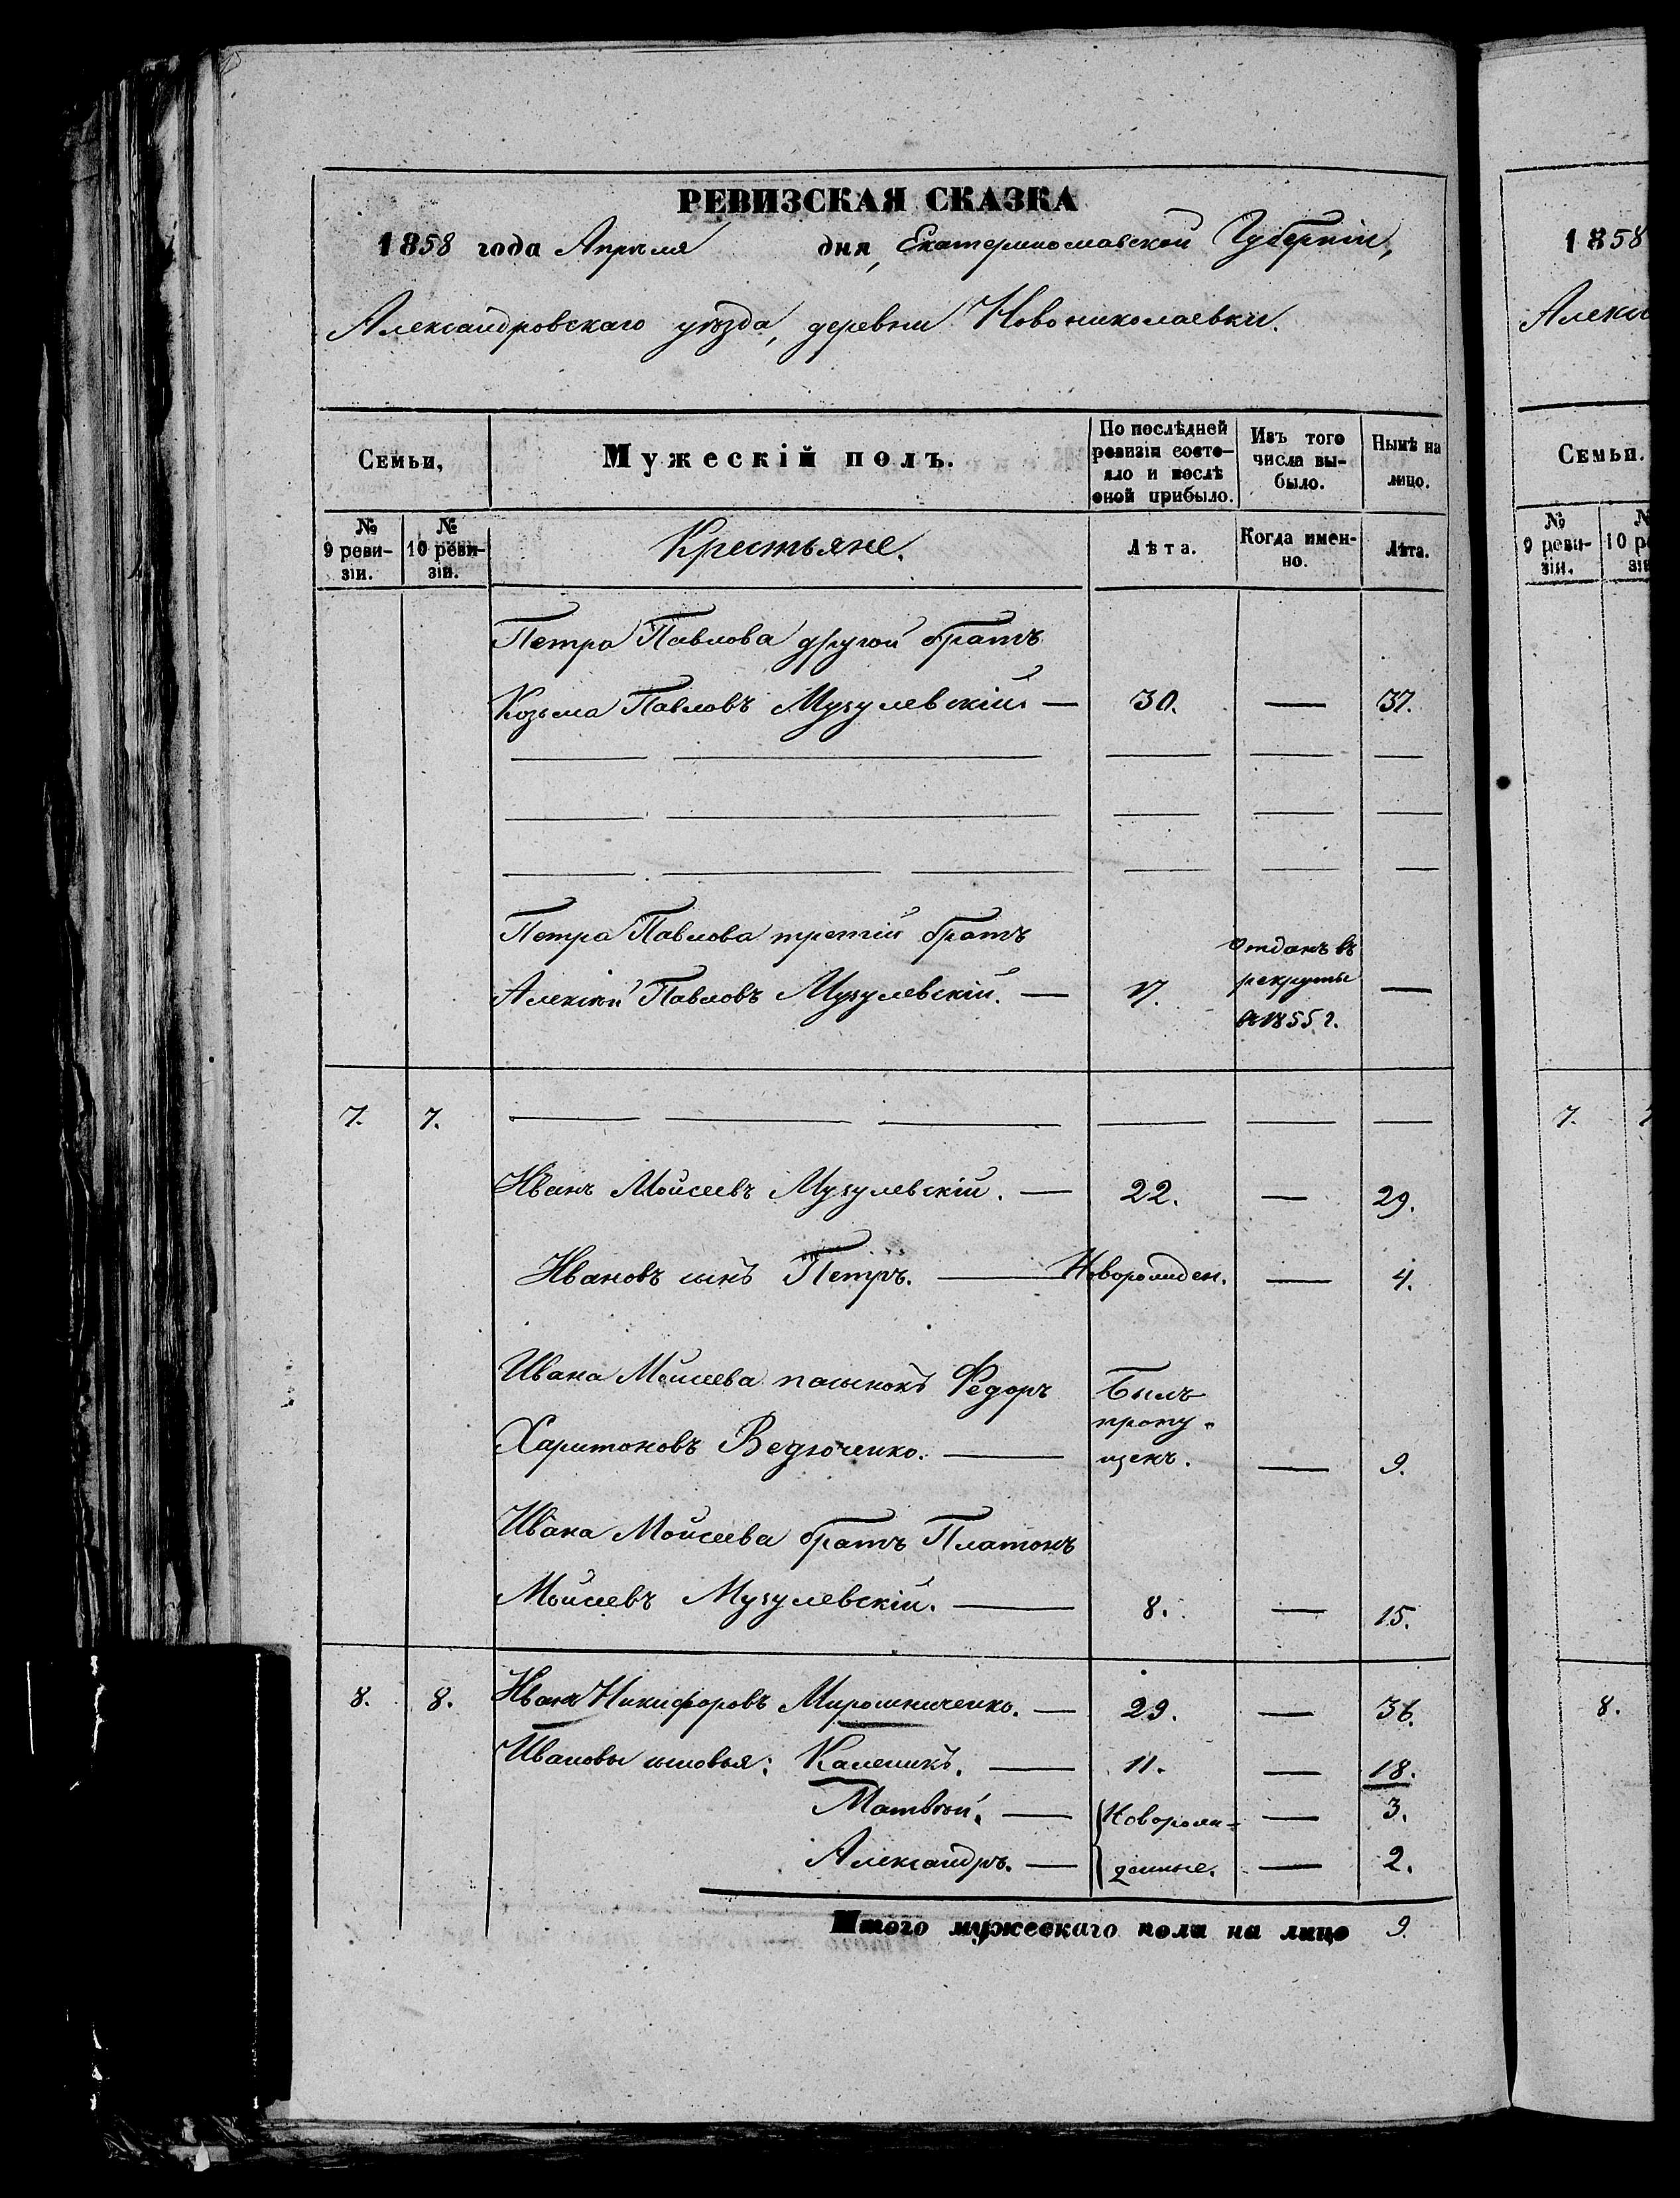 РЕВИЗСКАЯ СКАЗКА
1858 года Апрѣля дня, Екатеринославской Губерніи,
Александровскаго уѣзда, деревни Новониколаевки.
Семьи, Мужескій полъ. По послѣдней ревизіи состо-яло и послѣ оной прибыло. Изъ того числа вы-было. Нынѣ на лицо.
№ 9 реви-зіи. № 10 реви-зіи. Крестьяне. Лѣта. Когда имен-но. Лѣта.
Петра Павлова другой братъ
Козьма Павловъ Музулевскій — 30. — 37.
Петра Павлова третій братъ
Алексѣй Павловъ Музулевскій. — 17. Отданъ въ рекруты въ 1855 г. —
7. 7.
Иванъ Моисеевъ Музулевскій. — 22. — 29.
Ивановъ сынъ Петръ. — Новорожден. — 4.
Ивана Моисеева пасынокъ Федоръ
Харитоновъ Ведюченко. — Былъ пропу-щенъ. — 9.
Ивана Моисеева братъ Платонъ
Моисеевъ Музулевскій. — 8. — 15.
8. 8. Иванъ Никифоровъ Мирошниченко. — 29. — 36.
Ивановы сыновья: Каленикъ. — 11. — 18.
Матвѣй. — Новорож- — 3.
Александръ. — денные. — 2.
Итого мужескаго пола на лицо 9.
1858
Алекса
Семьи.
№ 9 реви-зіи. 10
7.
8.